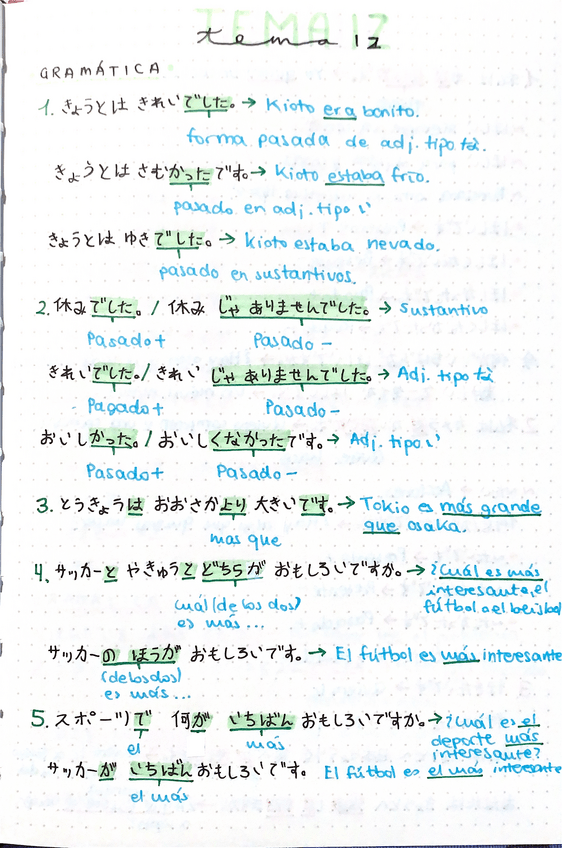 TEMA 12
tema 12
GRAMÁTICA
1. きょうとは きれいでした。→ Kioto era bonito.
forma pasada de adj. tipo な.
きょうとは さむかったです。→ Kioto estaba frío.
pasado en adj. tipo い
きょうとは ゆきでした。→ Kioto estaba nevado.
pasado en sustantivos.
2. 休みでした。/ 休み じゃ ありませんでした。→ Sustantivo
Pasado + Pasado -
きれいでした。/ きれい じゃ ありませんでした。→ Adj. tipo な
Pasado + Pasado -
おいしかった。/ おいしくなかったです。→ Adj. tipo い
Pasado + Pasado -
3. とうきょうは おおさかより 大きいです。→ Tokio es más grande
que osaka.
mas que
4. サッカーと やきゅうと どちらが おもしろいですか。→ ¿Cuál es más
interesante, el
fútbol o el beisbol
cuál (de los dos)
es más...
サッカーの ほうが おもしろいです。→ El fútbol es más interesante
(de los dos)
es más...
5. スポーツで 何が いちばん おもしろいですか。→ ¿Cuál es el
deporte más
interesante?
el más
サッカーが いちばん おもしろいです。 El fútbol es el más interesante
el más